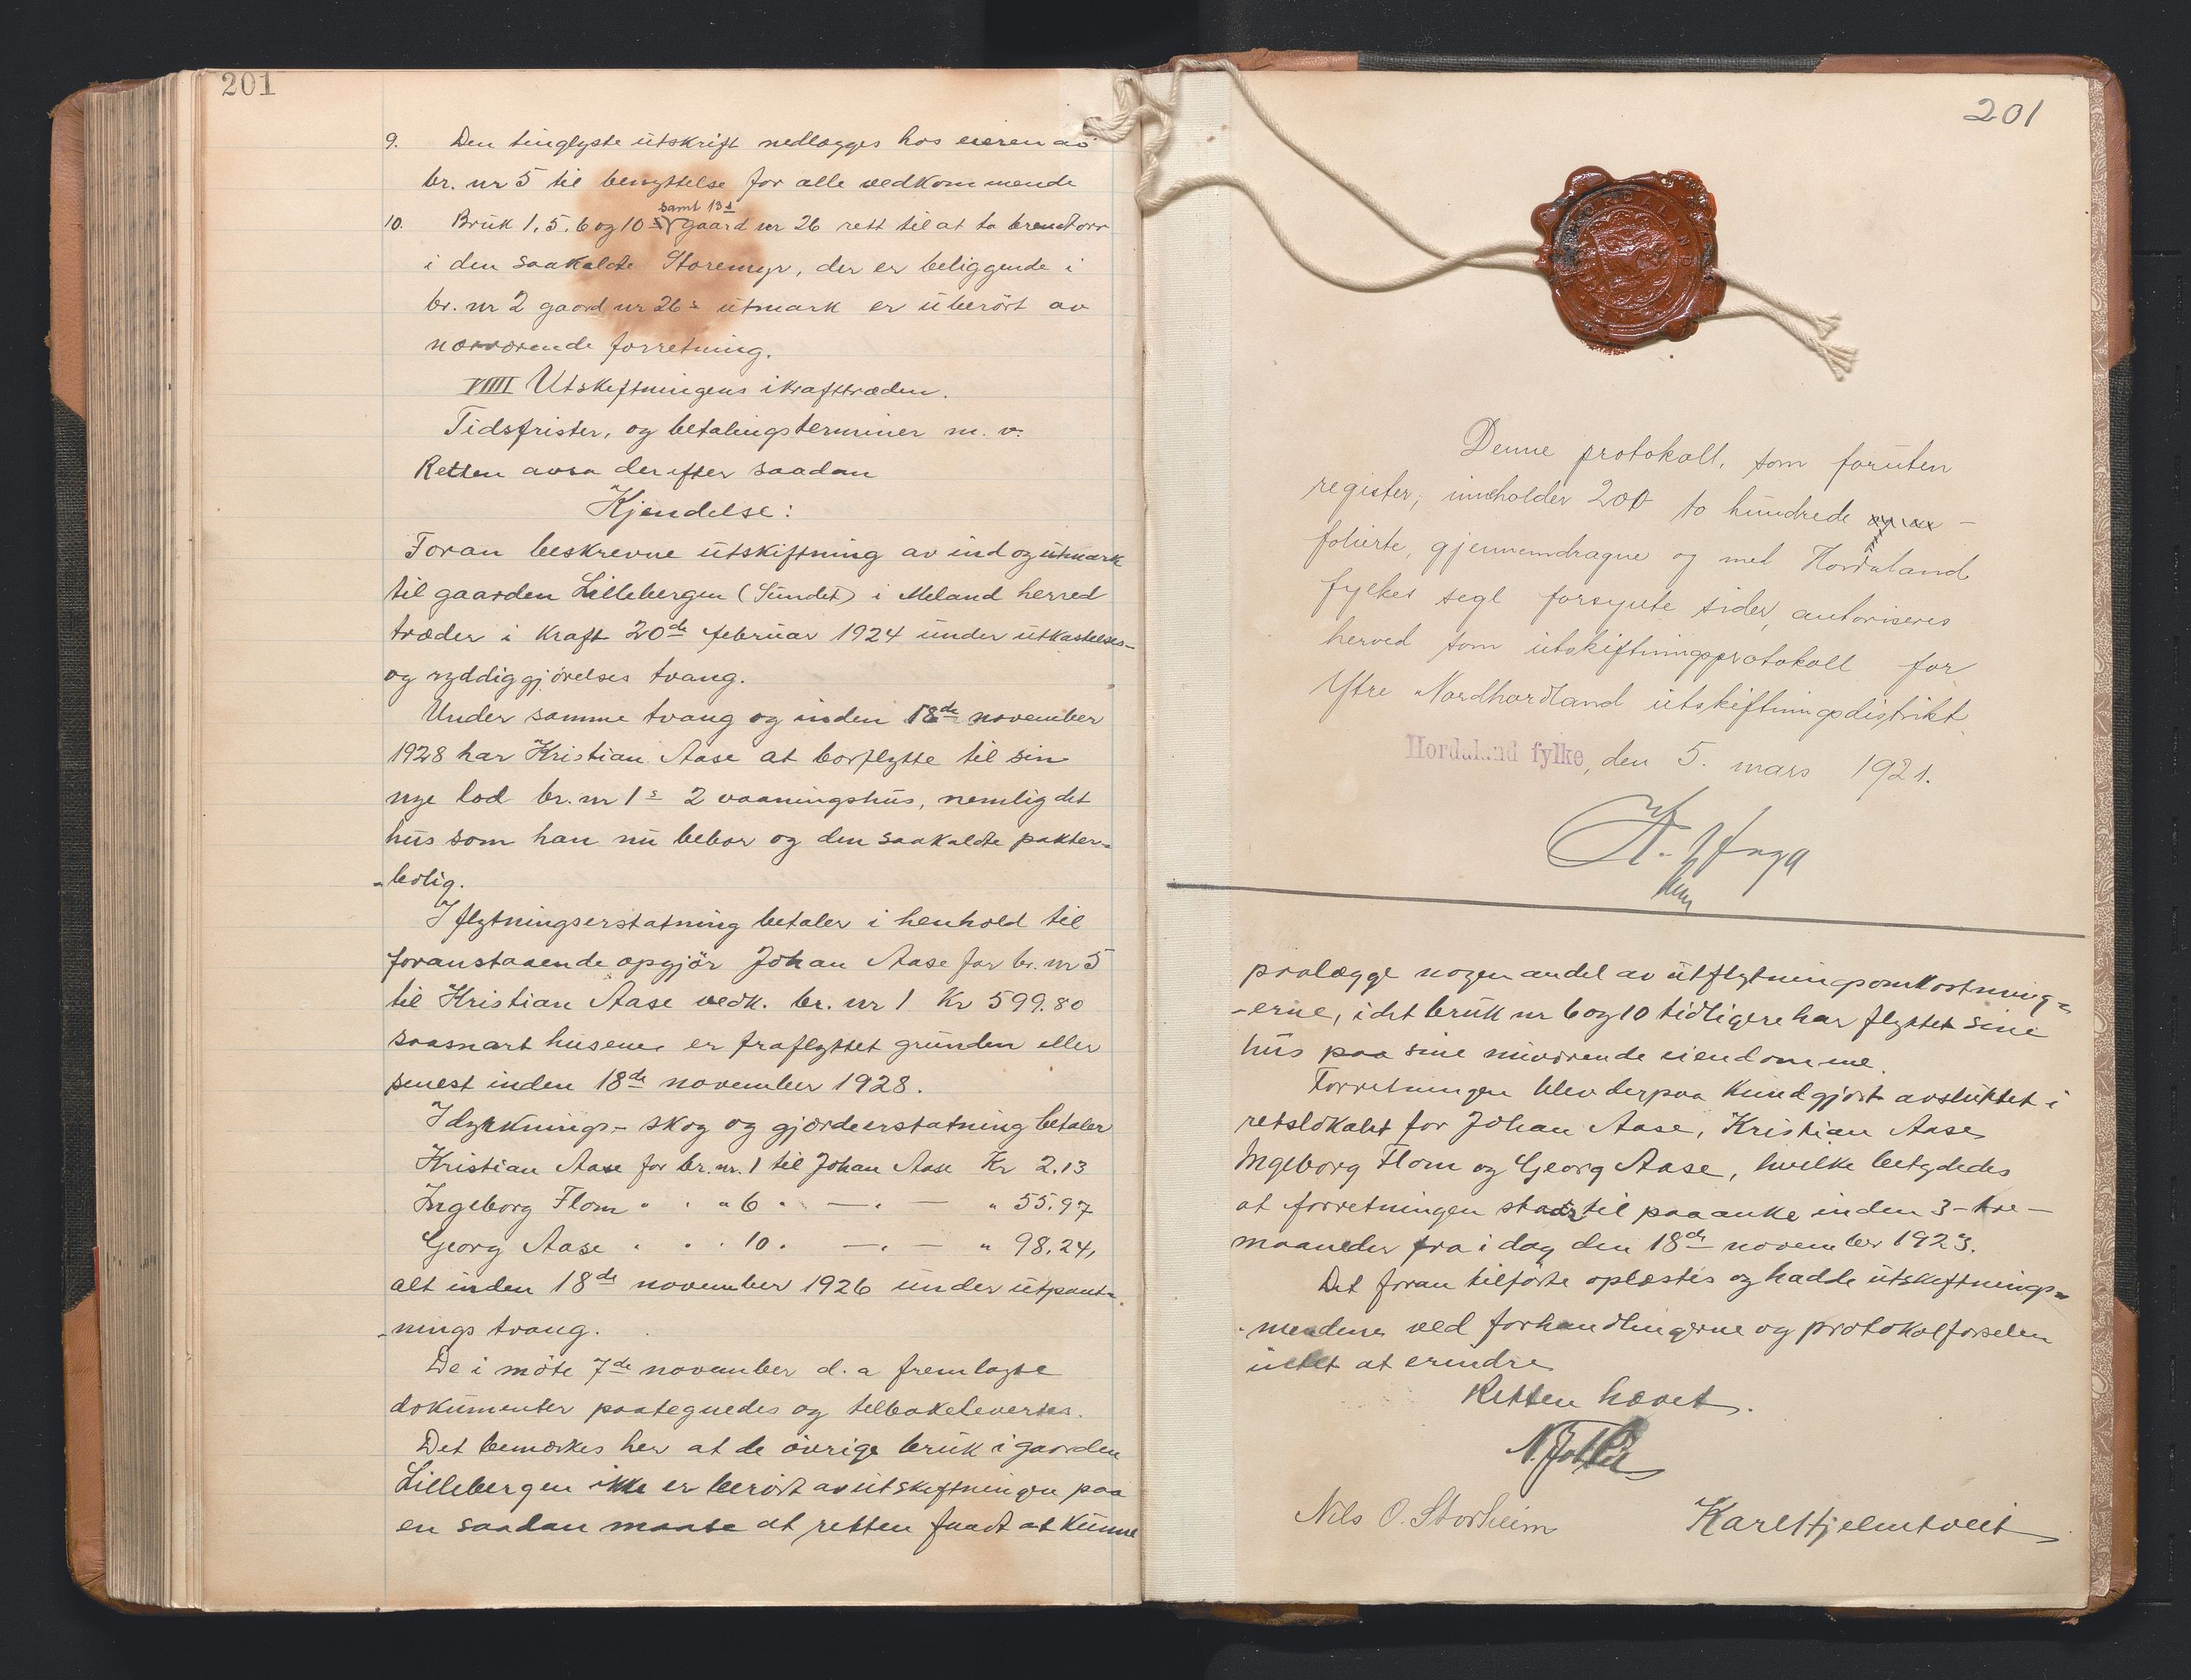 201
9. Den tinglyste utskrift nedlægges hos eieren av
br. nr 5 til benyttelse for alle vedkommende
samt 13s
10. Bruk 1, 5, 6 og 10 gaard nr 26 rett til at ta brendtorv
i den saakaldte Storemyr, der er beliggende i
br. nr 2 gaard nr 26s utmark er uberørt av
nærværende forretning.
VIIII Utskiftningens ikrafttræden.
Tidsfrister, og betalingsterminer m. v.
Retten avsa derefter saadan
Kjendelse:
Foran beskrevne utskiftning av ind og utmark
til gaarden Lillebergen (Sundet) i Meland herred
træder i kraft 20de februar 1924 under utkastelses-
og ryddiggjørelses tvang.
Under samme tvang og inden 18de november
1928 har Kristian Aase at borflytte til sin
nye lod br. nr 1s 2 vaaningshus, nemlig det
hus som han nu bebor og den saakaldte pakter=
-bolig.
I flytningserstatning betaler i henhold til
foranstaaende opgjør Johan Aase for br. nr 5
til Kristian Aase vedk. br. nr 1 Kr 599.80
saasnart husene er fraflyttet grunden eller
senest inden 18de november 1928.
I dyrknings- skog og gjærdeerstatning betaler
Kristian Aase for br. nr. 1 til Johan Aase Kr 2.13
Ingeborg Flom " " " 6 " — " — " 55.97
Georg Aase " " " 10 " — " — " 98.24,
alt inden 18de november 1926 under utpant=
-nings tvang.
De i møte 7de november d. a fremlagte
dokumenter paategnedes og tilbakelevertes.
Det bemærkes her at de øvrige bruk i gaarden
Lillebergen ikke er berørt av utskiftningen paa
en saadan maate at retten fandt at kunne
201
HORDALAND
Denne protokoll, som foruten
register, inneholder 200 to hundrede —
folierte, gjennemdragne og med Hordaland
fylkes segl forsynte sider, autoriseres
herved som utskiftningsprotokoll for
Ytre Nordhordland utskiftningsdistrikt.
Hordaland fylke, den 5. mars 1921.
paalægge nogen andel av utflytningsomkostning=
-erne, idet bruk nr 6 og 10 tidligere har flyttet sine
hus paa sine nuværende eiendomme.
Forretningen blev derpaa kundgjort avsluttet i
retslokalet for Johan Aase, Kristian Aase,
Ingeborg Flom og Georg Aase, hvilke betydedes
at forretningen staar til paaanke inden 3 - tre -
maaneder fra i dag den 18de november 1923.
Det foran tilførte oplæstes og hadde utskiftnings=
-mendene ved forhandlingerne og protokolførselen
intet at erindre
Retten hævet.
Nils O. Storheim Karl Hjelmtveit